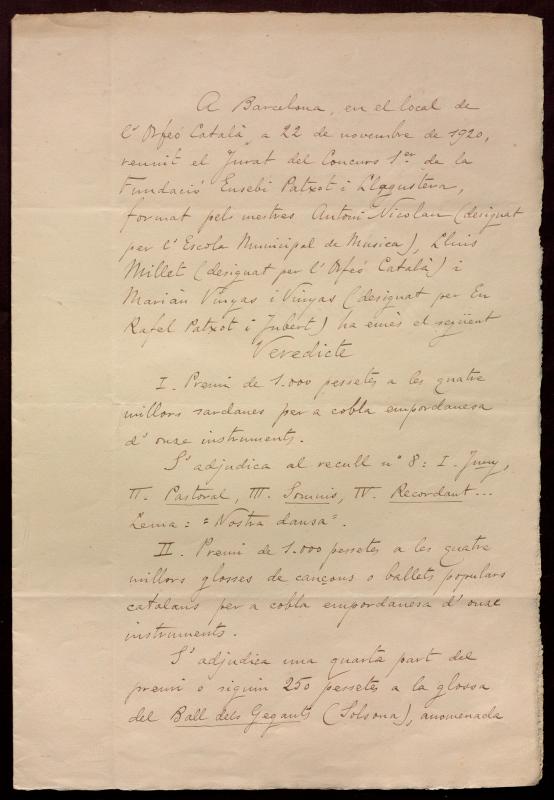 A Barcelona, en el local de
l'Orfeó Català, a 22 de novembre de 1920,
reunit el Jurat del Concurs 1er de la
Fundació Eusebi Patxot i Llagustera,
format pels mestres Antoni Nicolau (designat
per l'Escola Municipal de Música), Lluis
Millet (designat per l'Orfeó Català) i
Marián Vinyas i Vinyas (designat per En
Rafel Patxot i Jubert) ha emès el següent
Veredicte
I. Premi de 1.000 pessetes a les quatre
millors sardanes per a cobla empordanesa
d'onze instruments.
S'adjudica al recull nº 8: I. Juny,
II. Pastoral, III. Somnis, IV. Recordant...
Lema: "Nostra dansa".
II. Premi de 1.000 pessetes a les quatre
millors glosses de cançons o ballets populars
catalans per a cobla empordanesa d'onze
instruments.
S'adjudica una quarta part del
premi o siguin 250 pessetes a la glossa
del Ball dels Gegants (Solsona), anomenada